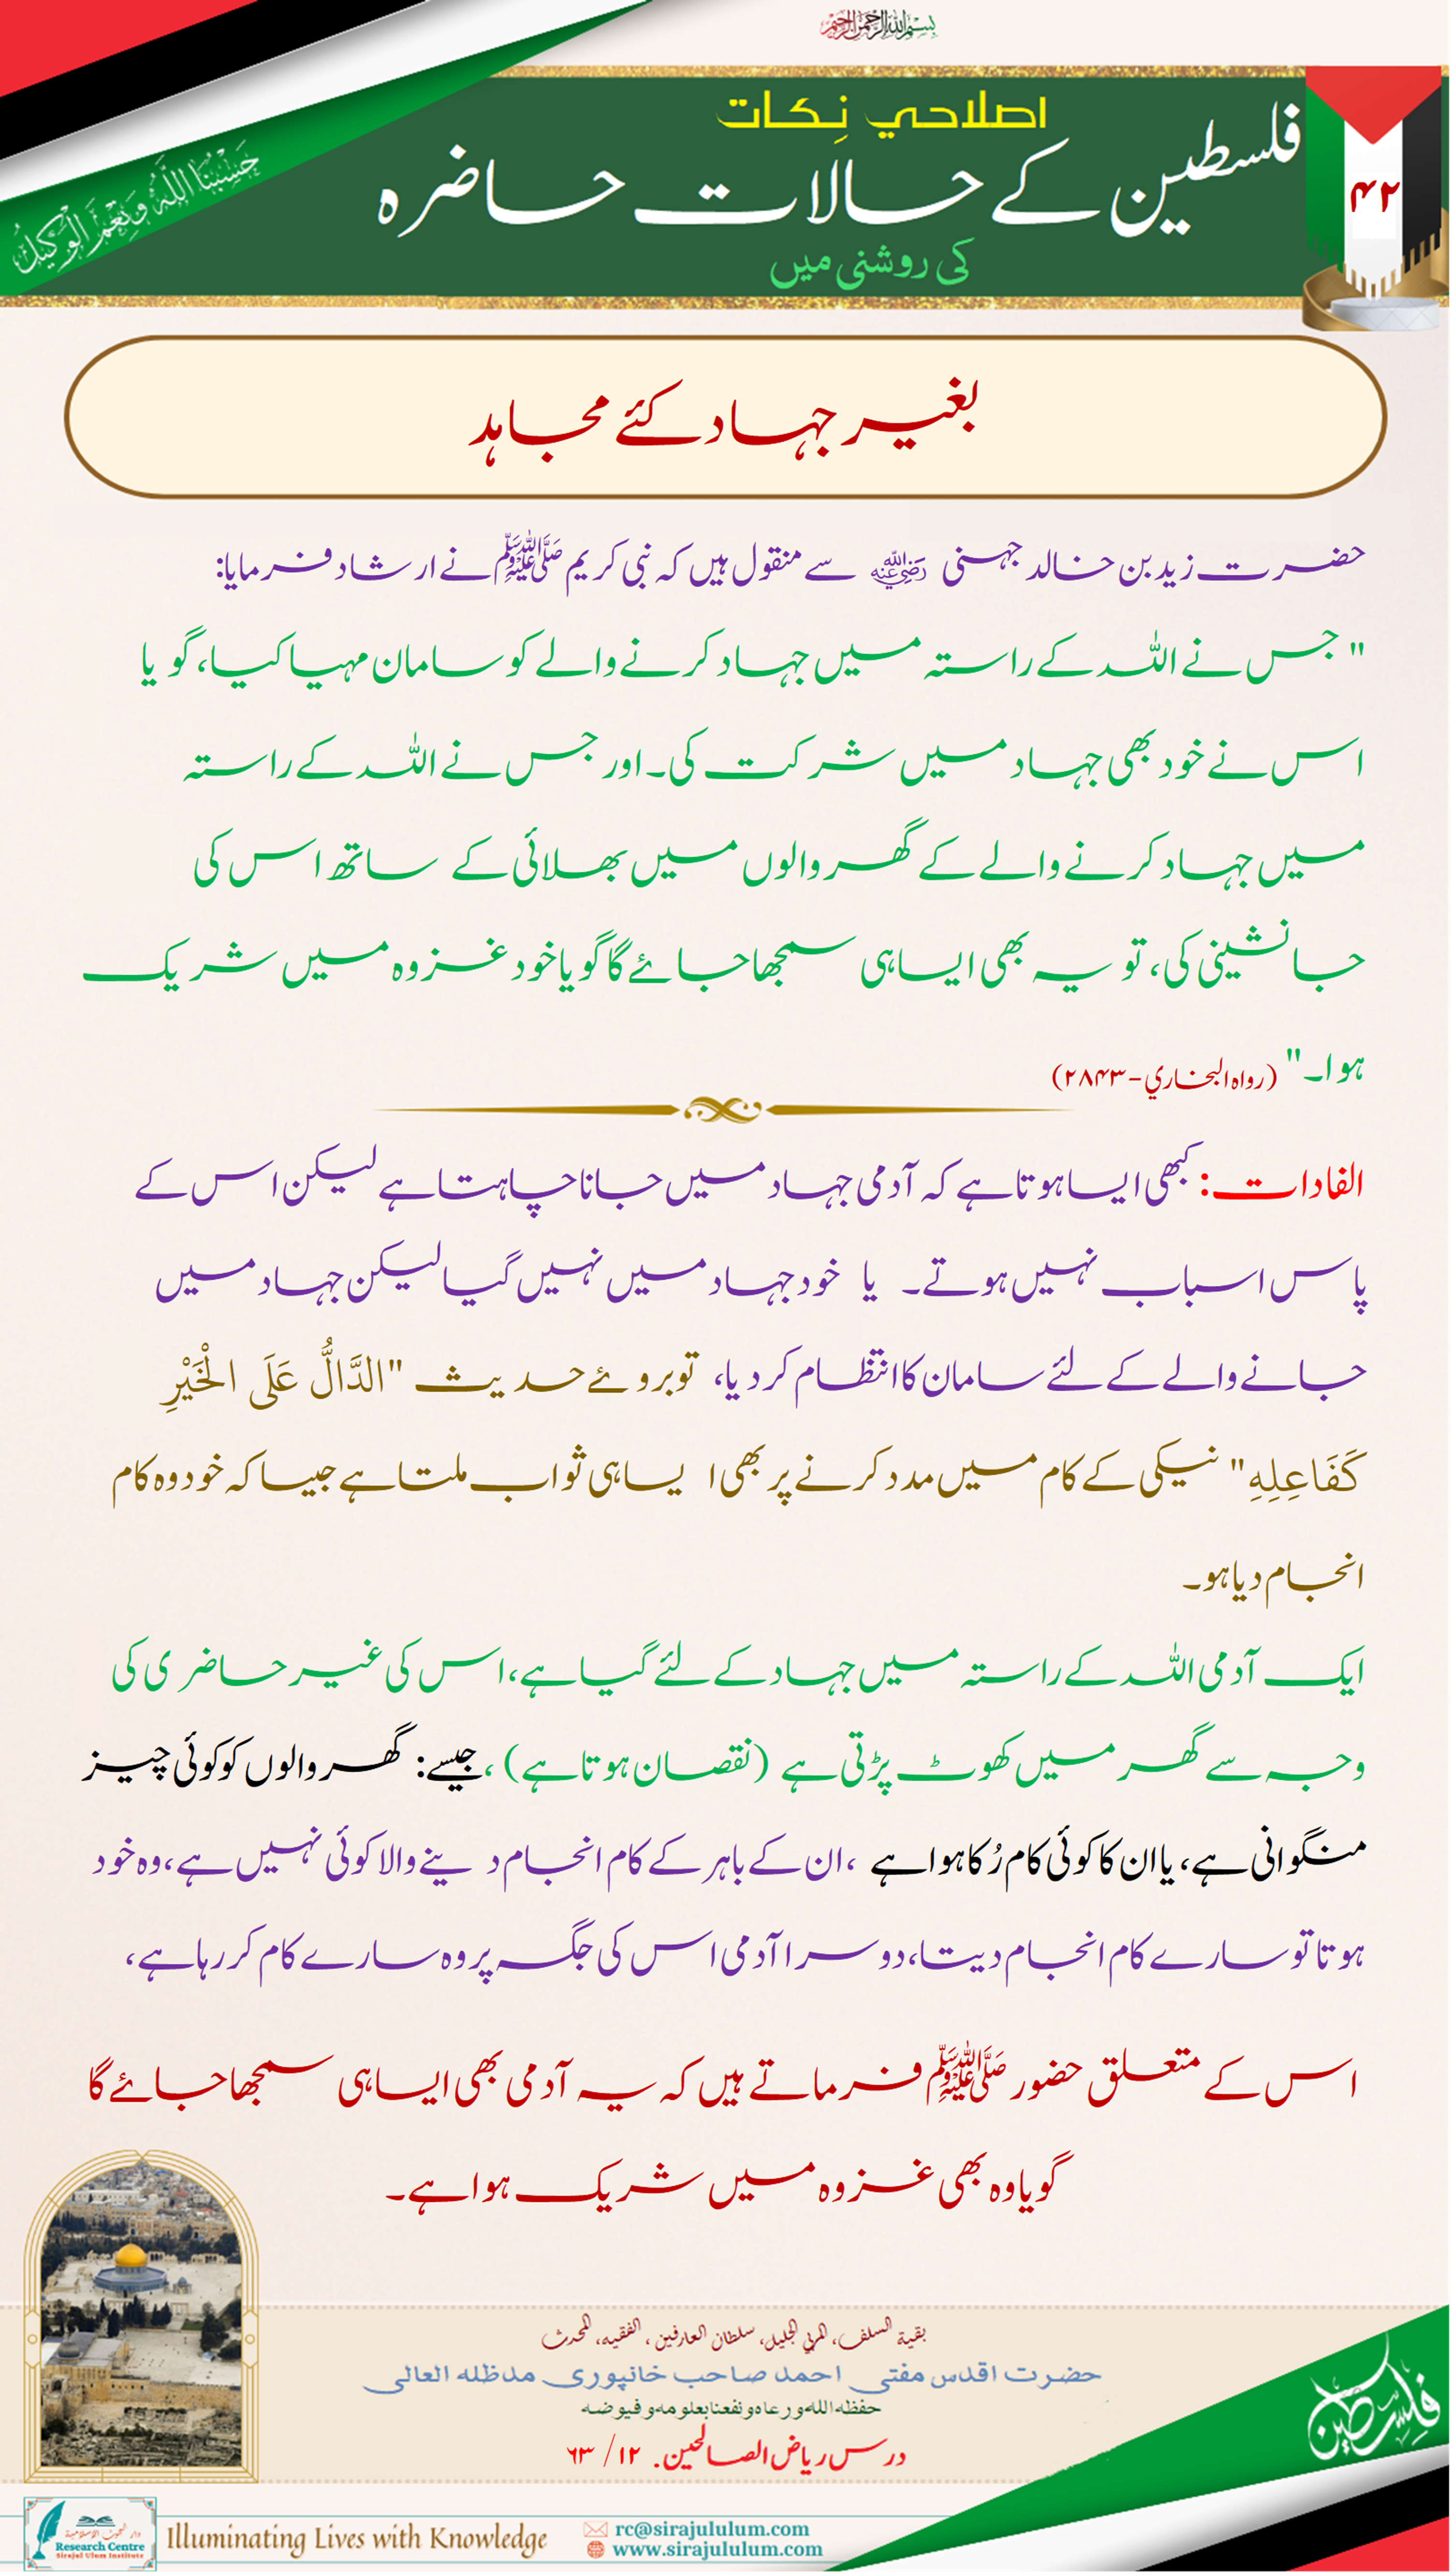 بسم الله الرحمن الرحيم
اصلاحي نِكات
فلسطین کے حالات حاضرہ
کی روشنی میں
۴۲
حَسْبُنَا اللَّهُ وَنِعْمَ الْوَكِيلُ
بغیر جہاد کئے مجاہد
حضرت زید بن خالد جہنی رضي الله عنه سے منقول ہیں کہ نبی کریم ﷺ نے ارشاد فرمایا:
" جس نے اللہ کے راستہ میں جہاد کرنے والے کو سامان مہیا کیا، گویا
اس نے خود بھی جہاد میں شرکت کی۔ اور جس نے اللہ کے راستہ
میں جہاد کرنے والے کے گھر والوں میں بھلائی کے ساتھ اس کی
جانشینی کی، تو یہ بھی ایسا ہی سمجھا جائے گا گویا خود غزوہ میں شریک
ہوا۔" (رواه البخاري - ۲۸۴۳)
الفادات: کبھی ایسا ہوتا ہے کہ آدمی جہاد میں جانا چاہتا ہے لیکن اس کے
پاس اسباب نہیں ہوتے۔ یا خود جہاد میں نہیں گیا لیکن جہاد میں
جانے والے کے لئے سامان کا انتظام کر دیا، تو بروئے حدیث "الدَّالُّ عَلَى الْخَيْرِ
كَفَاعِلِهِ" نیکی کے کام میں مدد کرنے پر بھی ایسا ہی ثواب ملتا ہے جیسا کہ خود وہ کام
انجام دیا ہو۔
ایک آدمی اللہ کے راستہ میں جہاد کے لئے گیا ہے، اس کی غیر حاضری کی
وجہ سے گھر میں کھوٹ پڑتی ہے (نقصان ہوتا ہے)، جیسے: گھر والوں کو کوئی چیز
منگوانی ہے، یا ان کا کوئی کام رُکا ہوا ہے، ان کے باہر کے کام انجام دینے والا کوئی نہیں ہے، وہ خود
ہوتا تو سارے کام انجام دیتا، دوسرا آدمی اس کی جگہ پر وہ سارے کام کر رہا ہے،
اس کے متعلق حضور ﷺ فرماتے ہیں کہ یہ آدمی بھی ایسا ہی سمجھا جائے گا
گویا وہ بھی غزوہ میں شریک ہوا ہے۔
بقية السلف، المربي الجليل، سلطان العارفين، الفقيه، المحدث
حضرت اقدس مفتی احمد صاحب خانپوری مدظلہ العالی
حفظه الله ورعاه ونفعنا بعلومه وفيوضه
درس ریاض الصالحین. ۱۲/ ۶۳
فلسطين
دار البحوث الإسلامية
Research Centre
Sirajul Ulum Institute
Illuminating Lives with Knowledge
rc@sirajululum.com
www.sirajululum.com